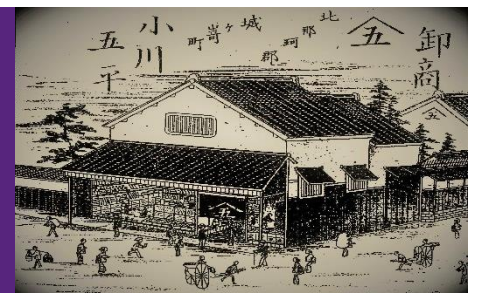 卸商
五
北那珂郡
城ヶ嵜町
小川
五平
五
五